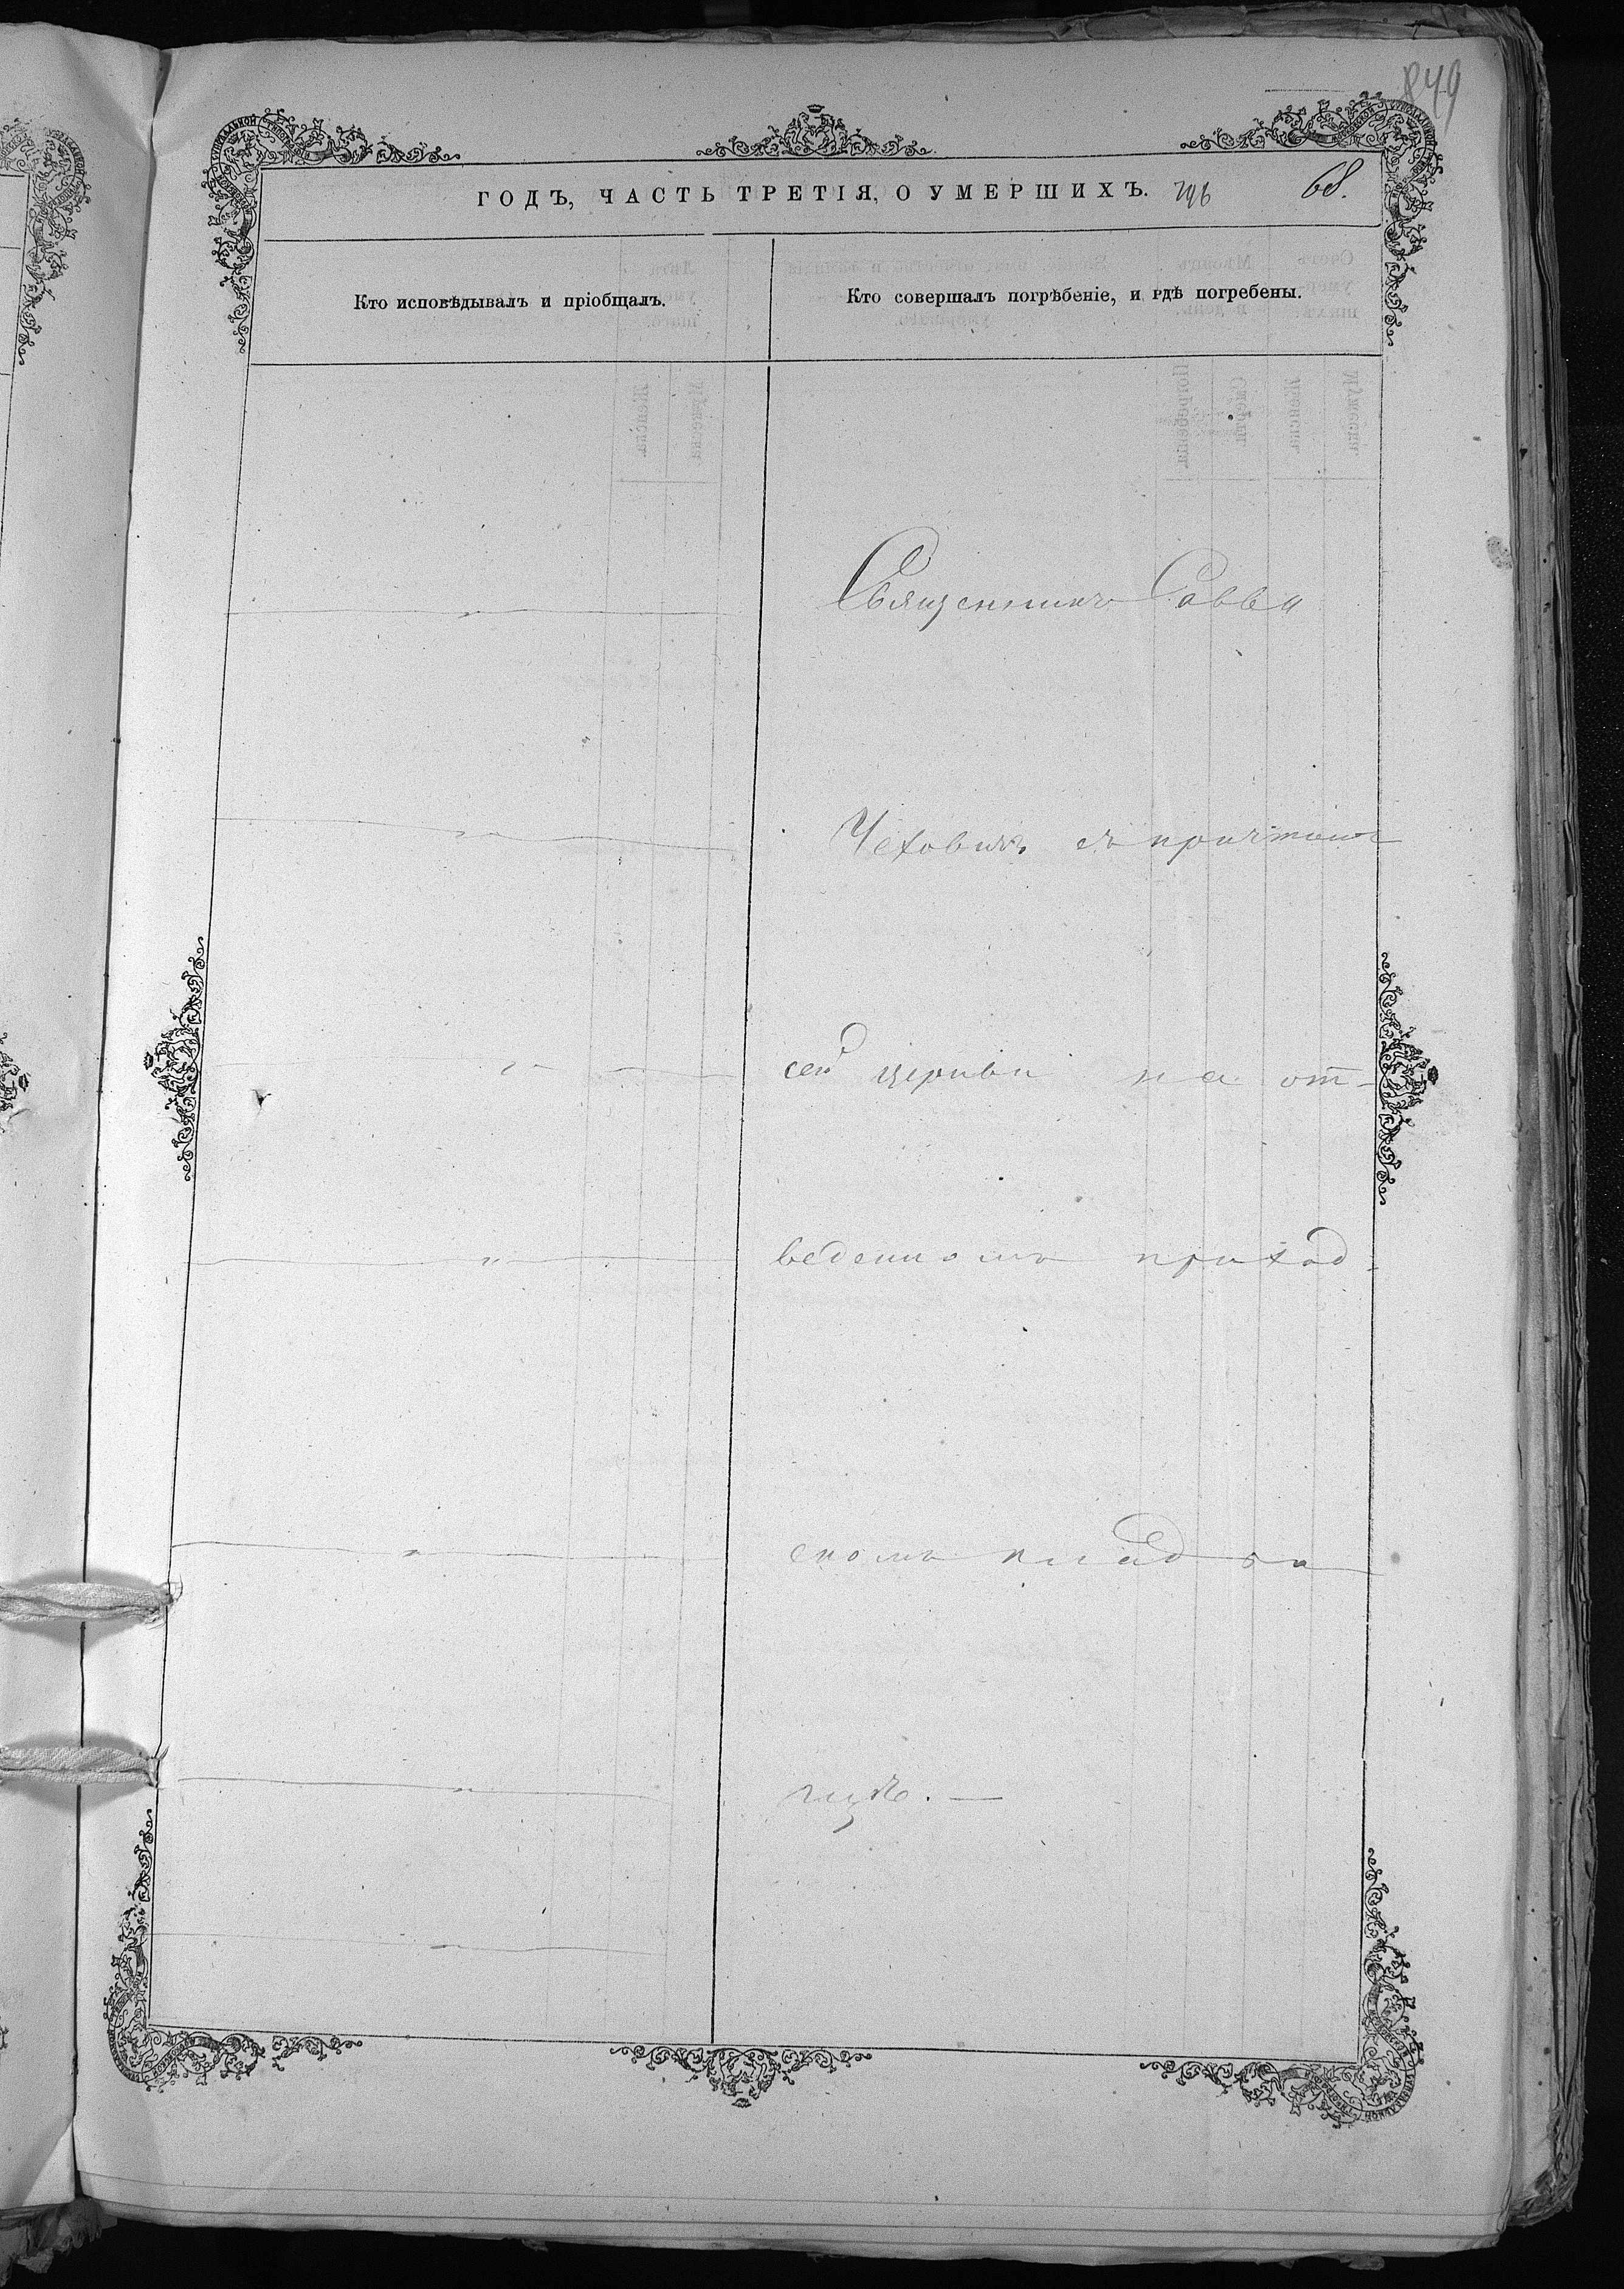 849
ГОДЪ, ЧАСТЬ ТРЕТІЯ, О УМЕРШИХЪ. 796 68.
Кто исповѣдывалъ и пріобщалъ.
Кто совершалъ погрѣбеніе, и гдѣ погребены.
Священникъ Савва
Чеховичъ съ причтомъ
сей церкви на от-
веденномъ приход-
скомъ кладби
щѣ. —